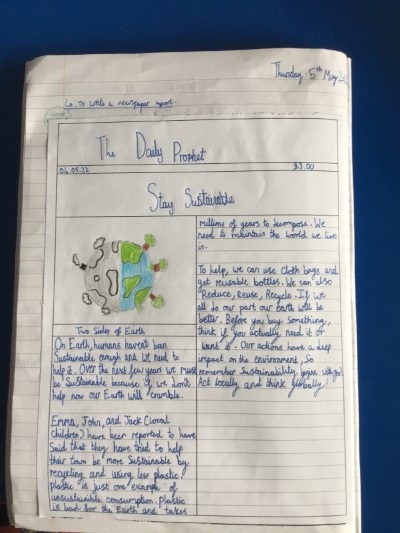 Thursday 5th May
Lo. To write a newspaper report.
The Daily Prophet
04.05.22
$3.00
Stay Sustainable
Two Sides of Earth
On Earth, humans havent been
Sustainable enough and we need to
help it. Over the next few years we must
be Sustainable because if we don't
help now our Earth will crumble.
Emma, John, and Jack (local
children) have been reported to have
Said that they have tried to help
their town be more Sustainable by
recycling and using less plastic.
plastic is just one example of
unsustainable consumption. plastic
is bad for the Earth and takes
millions of years to decompose. We
need to maintain the world we live
in.
To help, we can use cloth bags and
get reusable bottles. We can also
Reduce, Reuse, Recycle. If we
all do our part our earth will be
better. Before you buy something,
think if you actually need it or
want it. Our actions have a deep
impact on the environment, So
remember Sustainability begins with you!
Act locally and think globally!